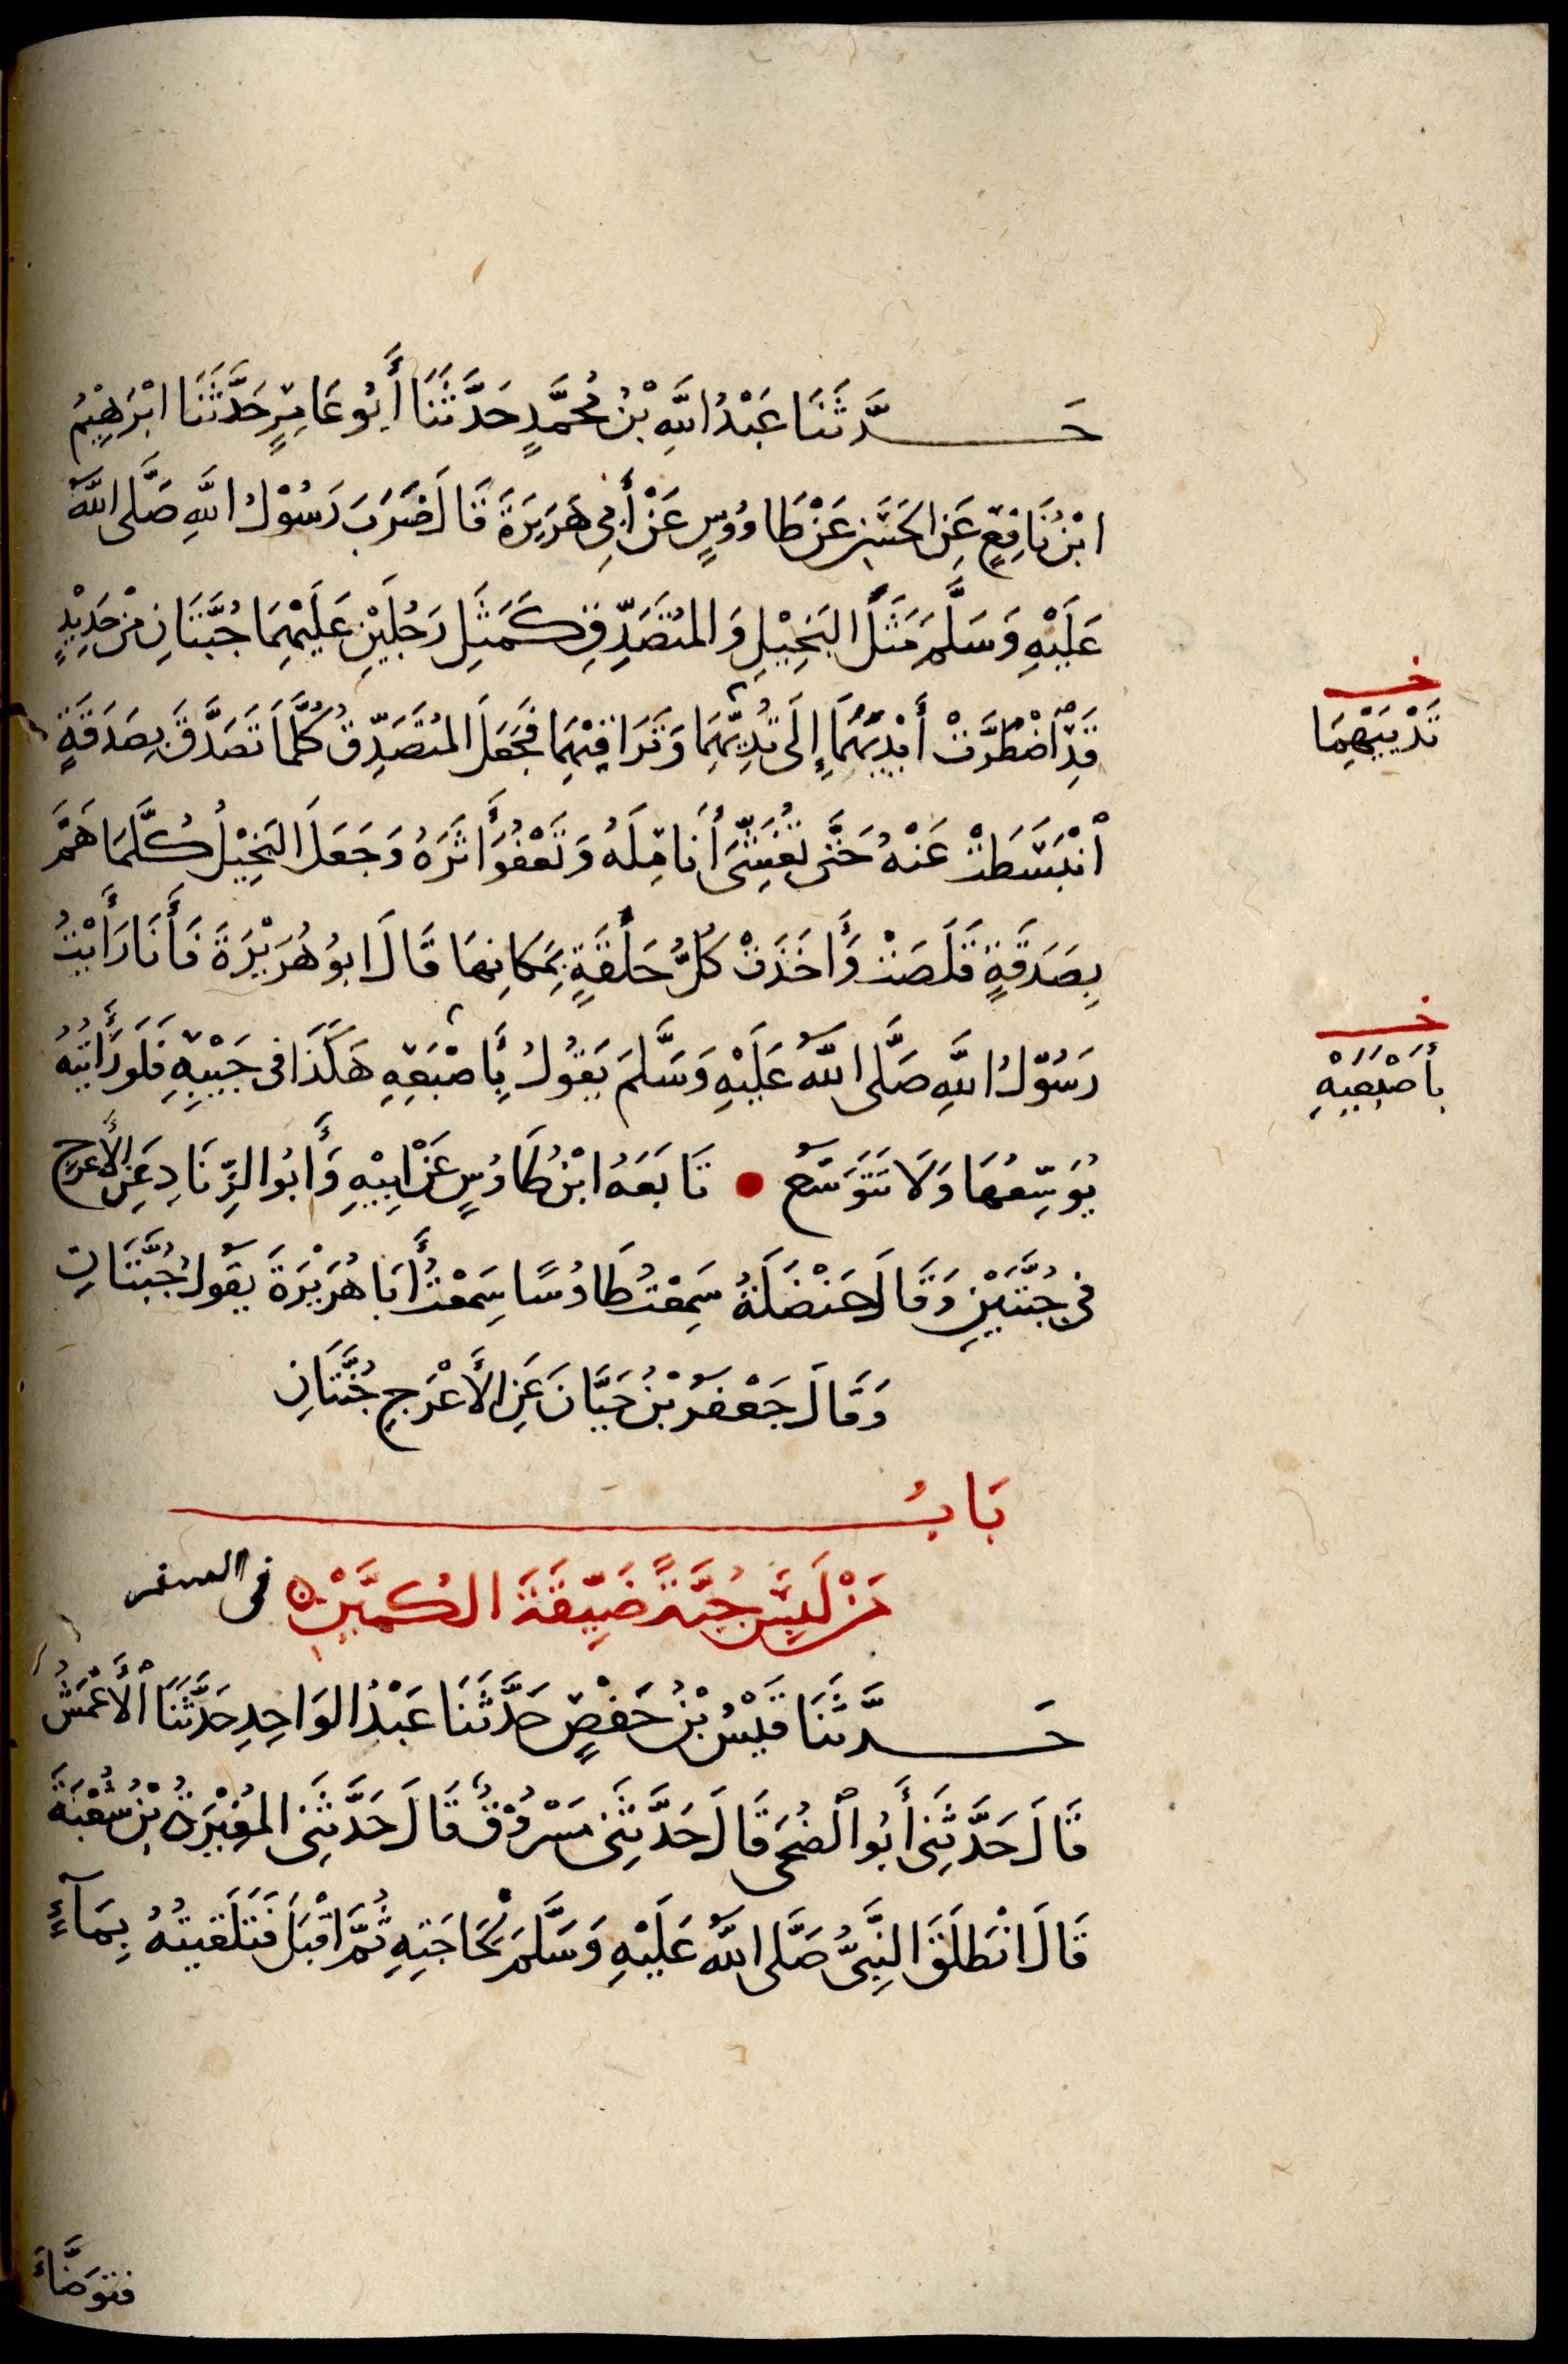 حَدَّثَنَا عَبْدُ اللَّهِ بْنُ مُحَمَّدٍ حَدَّثَنَا أَبُو عَامِرٍ حَدَّثَنَا ابْرَهِيْمُ
ابْنُ نَافِعٍ عَنِ الحَسَنِ عَنْ طَاوُوسٍ عَنْ أَبِي هُرَيْرَةَ قَالَ ضَرَبَ رَسُوْلُ اللَّهِ صَلَّى اللَّهُ
عَلَيْهِ وَسَلَّمَ مَثَلَ البَخِيْلِ وَالمُتَصَدِّقِ كَمَثَلِ رَجُلَيْنِ عَلَيْهِمَا جُبَّتَانِ مْنْ حَدِيْدٍ
قَدْ اضْطُرَّتْ أَيْدِيَهُمَا إِلَى ثُدِيِّهِمَا وَتَرَاقِيْهِمَا فَجَعَلَ المُتَصَدِّقُ كُلَّمَا تَصَدَّقَ بِصَدَقَةٍ
ثَدْيَيْهِمَا
انْبَسَطَتْ عَنْهُ حَتَّى تُغَشِّىَ أَنَامِلَهُ وَتَعْفُوَ أَثَرَهُ وَجَعَلَ البَخِيْلُ كُلَّمَا هَمَّ
بِصَدَقَةٍ قَلَصَتْ وَأَخَذَتْ كُلُّ حَلْقَةٍ بِمَكَانِهَا قَالَ ابُو هُرَيْرَةَ فَأَنَا رَأَيْتُ
رَسُوْلَ اللَّهِ صَلَّى اللَّهُ عَلَيْهِ وَسَلَّمَ يَقُولُ بِأَصْبَعِهِ هَكَذَا فِى جَيْبِهِ فَلَوْ رَأَيْتَهُ
بأَصْبَعَيْهِ
يُوَسِّعُهَا وَلَا تَتَوَسَّعُ تَابَعَهُ ابْنُ طَاوُسٍ عَنْ ابِيْهِ وَأَبُو الزِّنَادِ عَنِ الأَعْرَجِ
فى جُبَّتَيْنِ وَقَالَ حَنْضَلَةُ سَمِعْتُ طَاوُسًا سَمِعْتُ أَبَا هُرَيْرَةَ يَقُولُ جُبَّتَانِ
وَقَالَ جَعْفَرُ بْنُ حَيَّانَ عَنِ الأَعْرَجِ جُنَّتَانِ
بَابُ
مَنْ لَبِسَ جُبَّةً ضَيِّقَةَ الكُمَّيْنِ فى السفر
حَدَّثَنَا قَيْسُ بْنُ حَفْصٍ حَدَّثَنَا عَبْدُ الوَاحِدِ حَدَّثَنَا الأَعْمَشُ
قَالَ حَدَّثَنِى أَبُو الضُحَى قَالَ حَدَّثَنِى مَسْرُوْقٌ قَالَ حَدَّثَنِى المُغِيْرَةُ بْنُ شُعْبَةَ
قَالَ انْطَلَقَ النَّبِىُّ صَلَّى اللَّهُ عَلَيْهِ وَسَلَّمَ لِحَاجَتِهِ ثُمَّ اقْبَلَ فَتَلَقَيْتُهُ بِمَآءٍ
فتوَضَّأَ